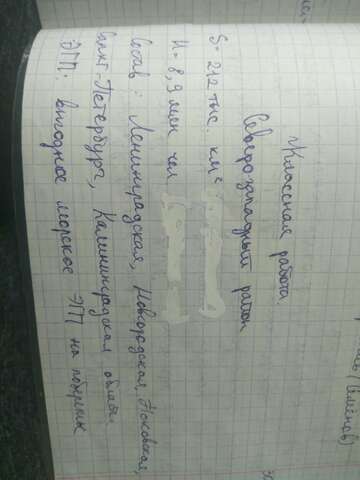 Классная работа.
Северо западный район
S = 212 тыс. км²
Н = 8,9 млн чел
Состав: Ленинградская, Новгородская, Псковская,
Санкт-Петербург, Калининградская область
ЭГП: выгодное морское ЭГП на